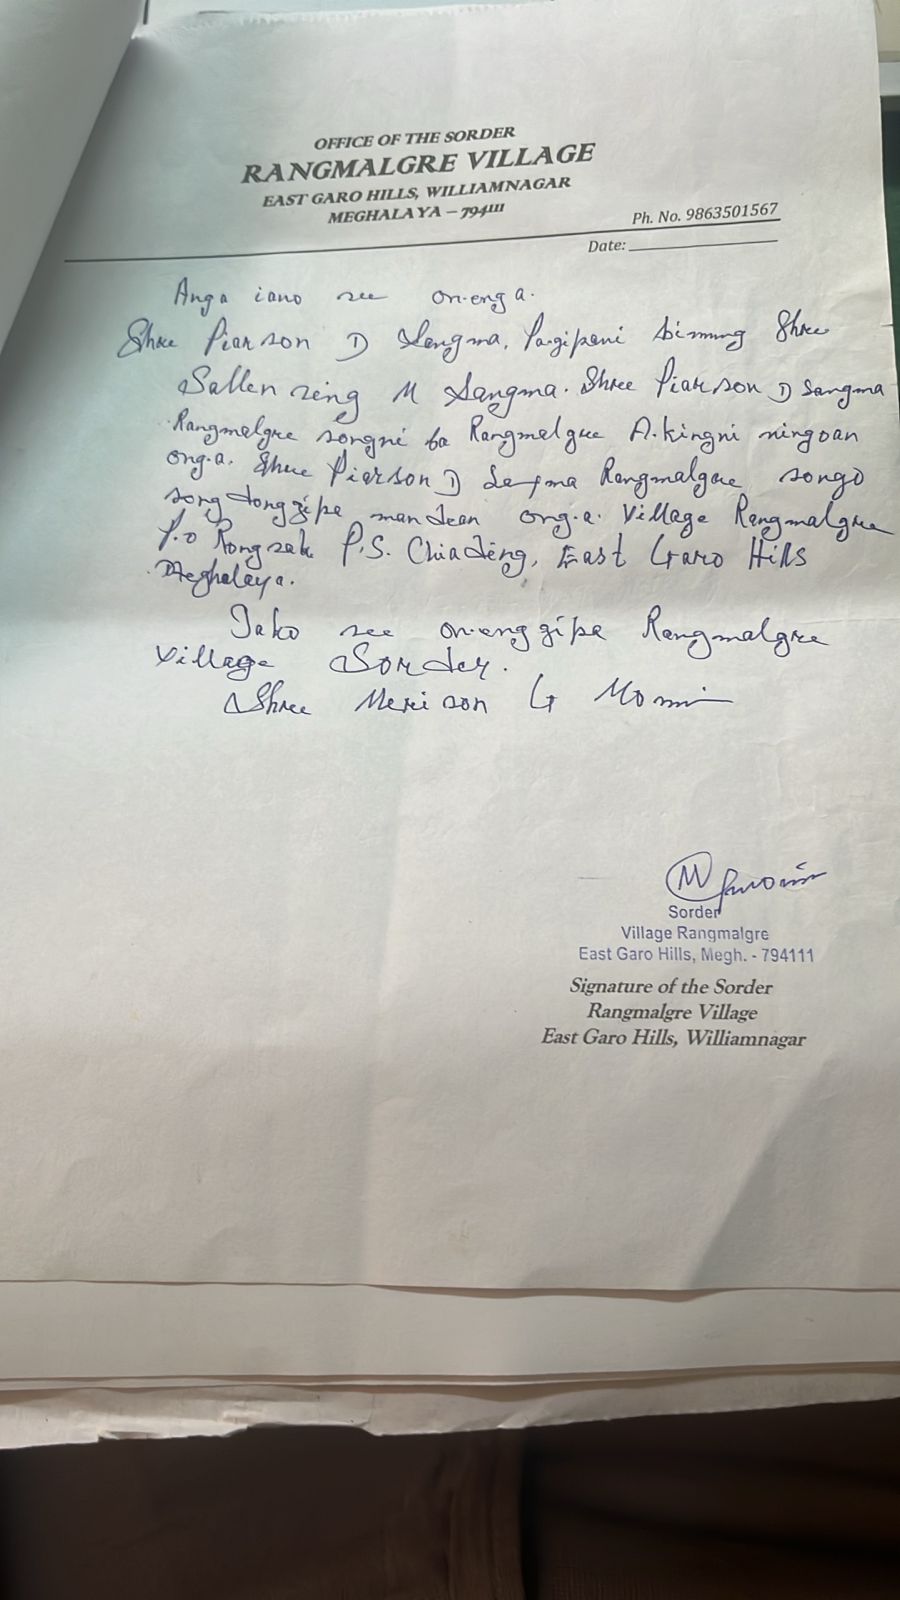 OFFICE OF THE SORDER
RANGMALGRE VILLAGE
EAST GARO HILLS, WILLIAMNAGAR
MEGHALAYA – 794111
Ph. No. 9863501567
Date:
Anga iano see on·enga.
Shree Piarson D Sangma, Pagipani bimung Shree
Sallen seng M Sangma. Shree Piarson D Sangma
Rangmalgre songni ba Rangmalgre A·kingni ningoan
ong·a. Shree Piarson D Sangma Rangmalgre songo
song donggipa mandean ong·a. Village Rangmalgre
P.O Rongsak P.S. Chiading, East Garo Hills
Meghalaya.
Iako see on·enggipa Rangmalgre
Village Sorder.
Shree Merison G Momin
Sorder
Village Rangmalgre
East Garo Hills, Megh. - 794111
Signature of the Sorder
Rangmalgre Village
East Garo Hills, Williamnagar